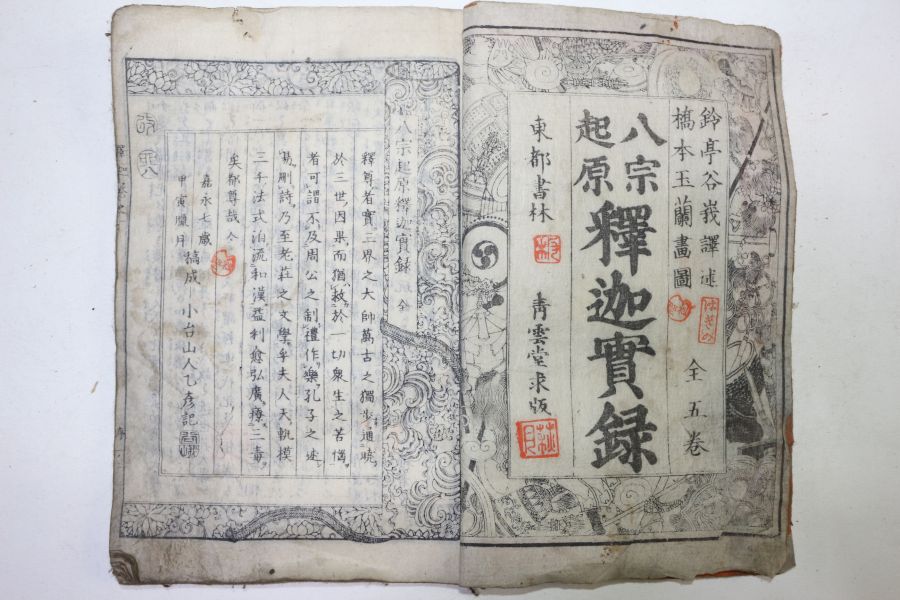 鈴亭谷峩譯述
橋本玉蘭畫圖
全五卷
八宗
起原
釋迦實録
東都書林
青雲堂求版
八宗起原釋迦實録 全
釋尊者實三界之大師萬古之獨步通曉
於三世因果而猶救於一切衆生之苦惱
者可謂不及周公之制禮作樂孔子之述
易刪詩乃至老莊之文學乎夫人天軌模
三千法式洎流和漢益利愈弘廣療三毒
矣都尊哉
嘉永七歲
甲寅臘月
稿成 小台山人乙彦記